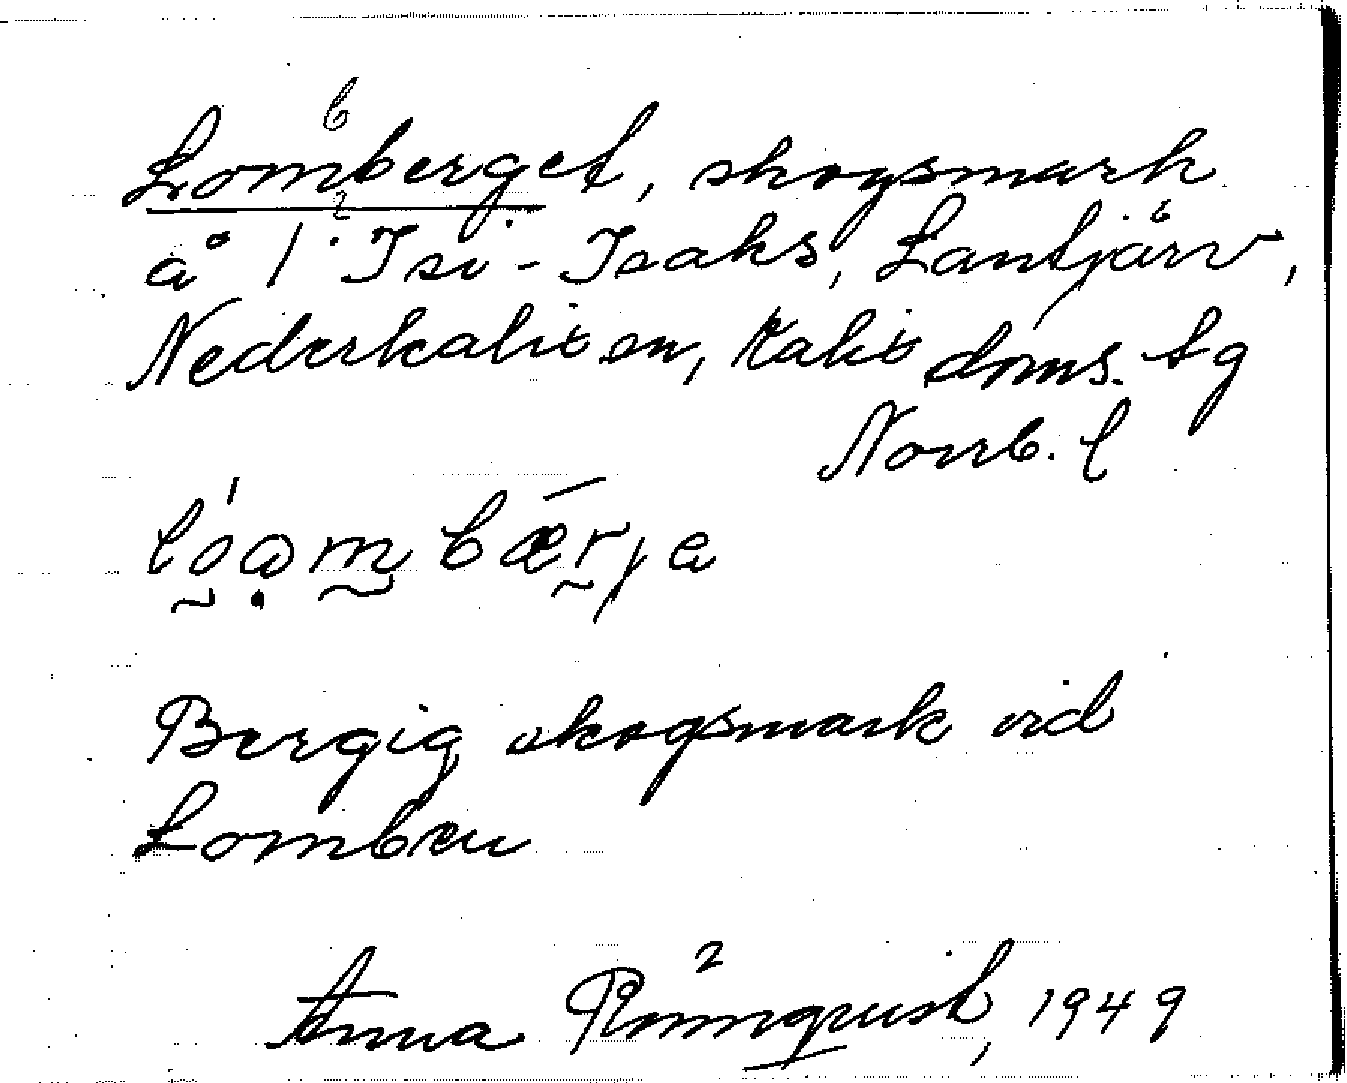 Lomberget, skogsmark
å 1⁶ Isi-Isaks, Lantjärv,
Nederkalix sn, Kalix doms. tg
Norrb. l
lóambærje
Bergig skogsmark vid
Lomben
Anna Rönnquist, 1949